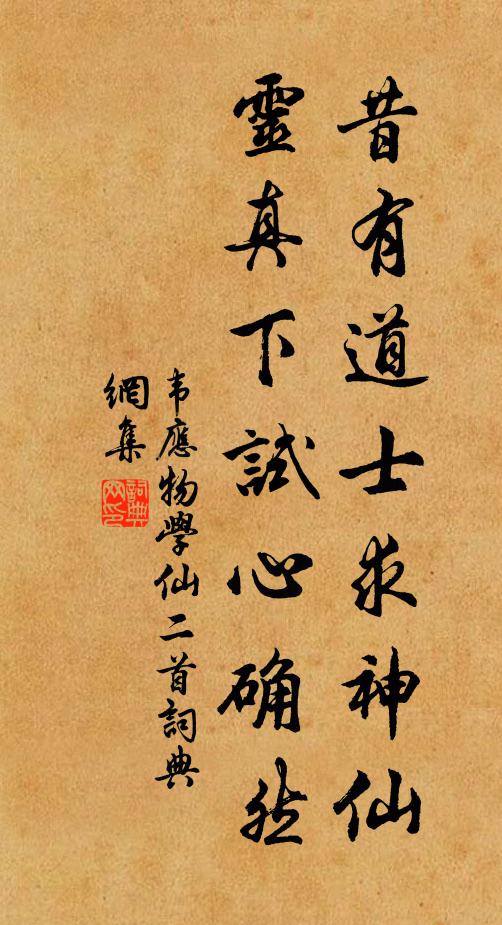 昔有道士求神仙
靈真下試心确然
韦應物學仙二首詞典
網集
詞典網印